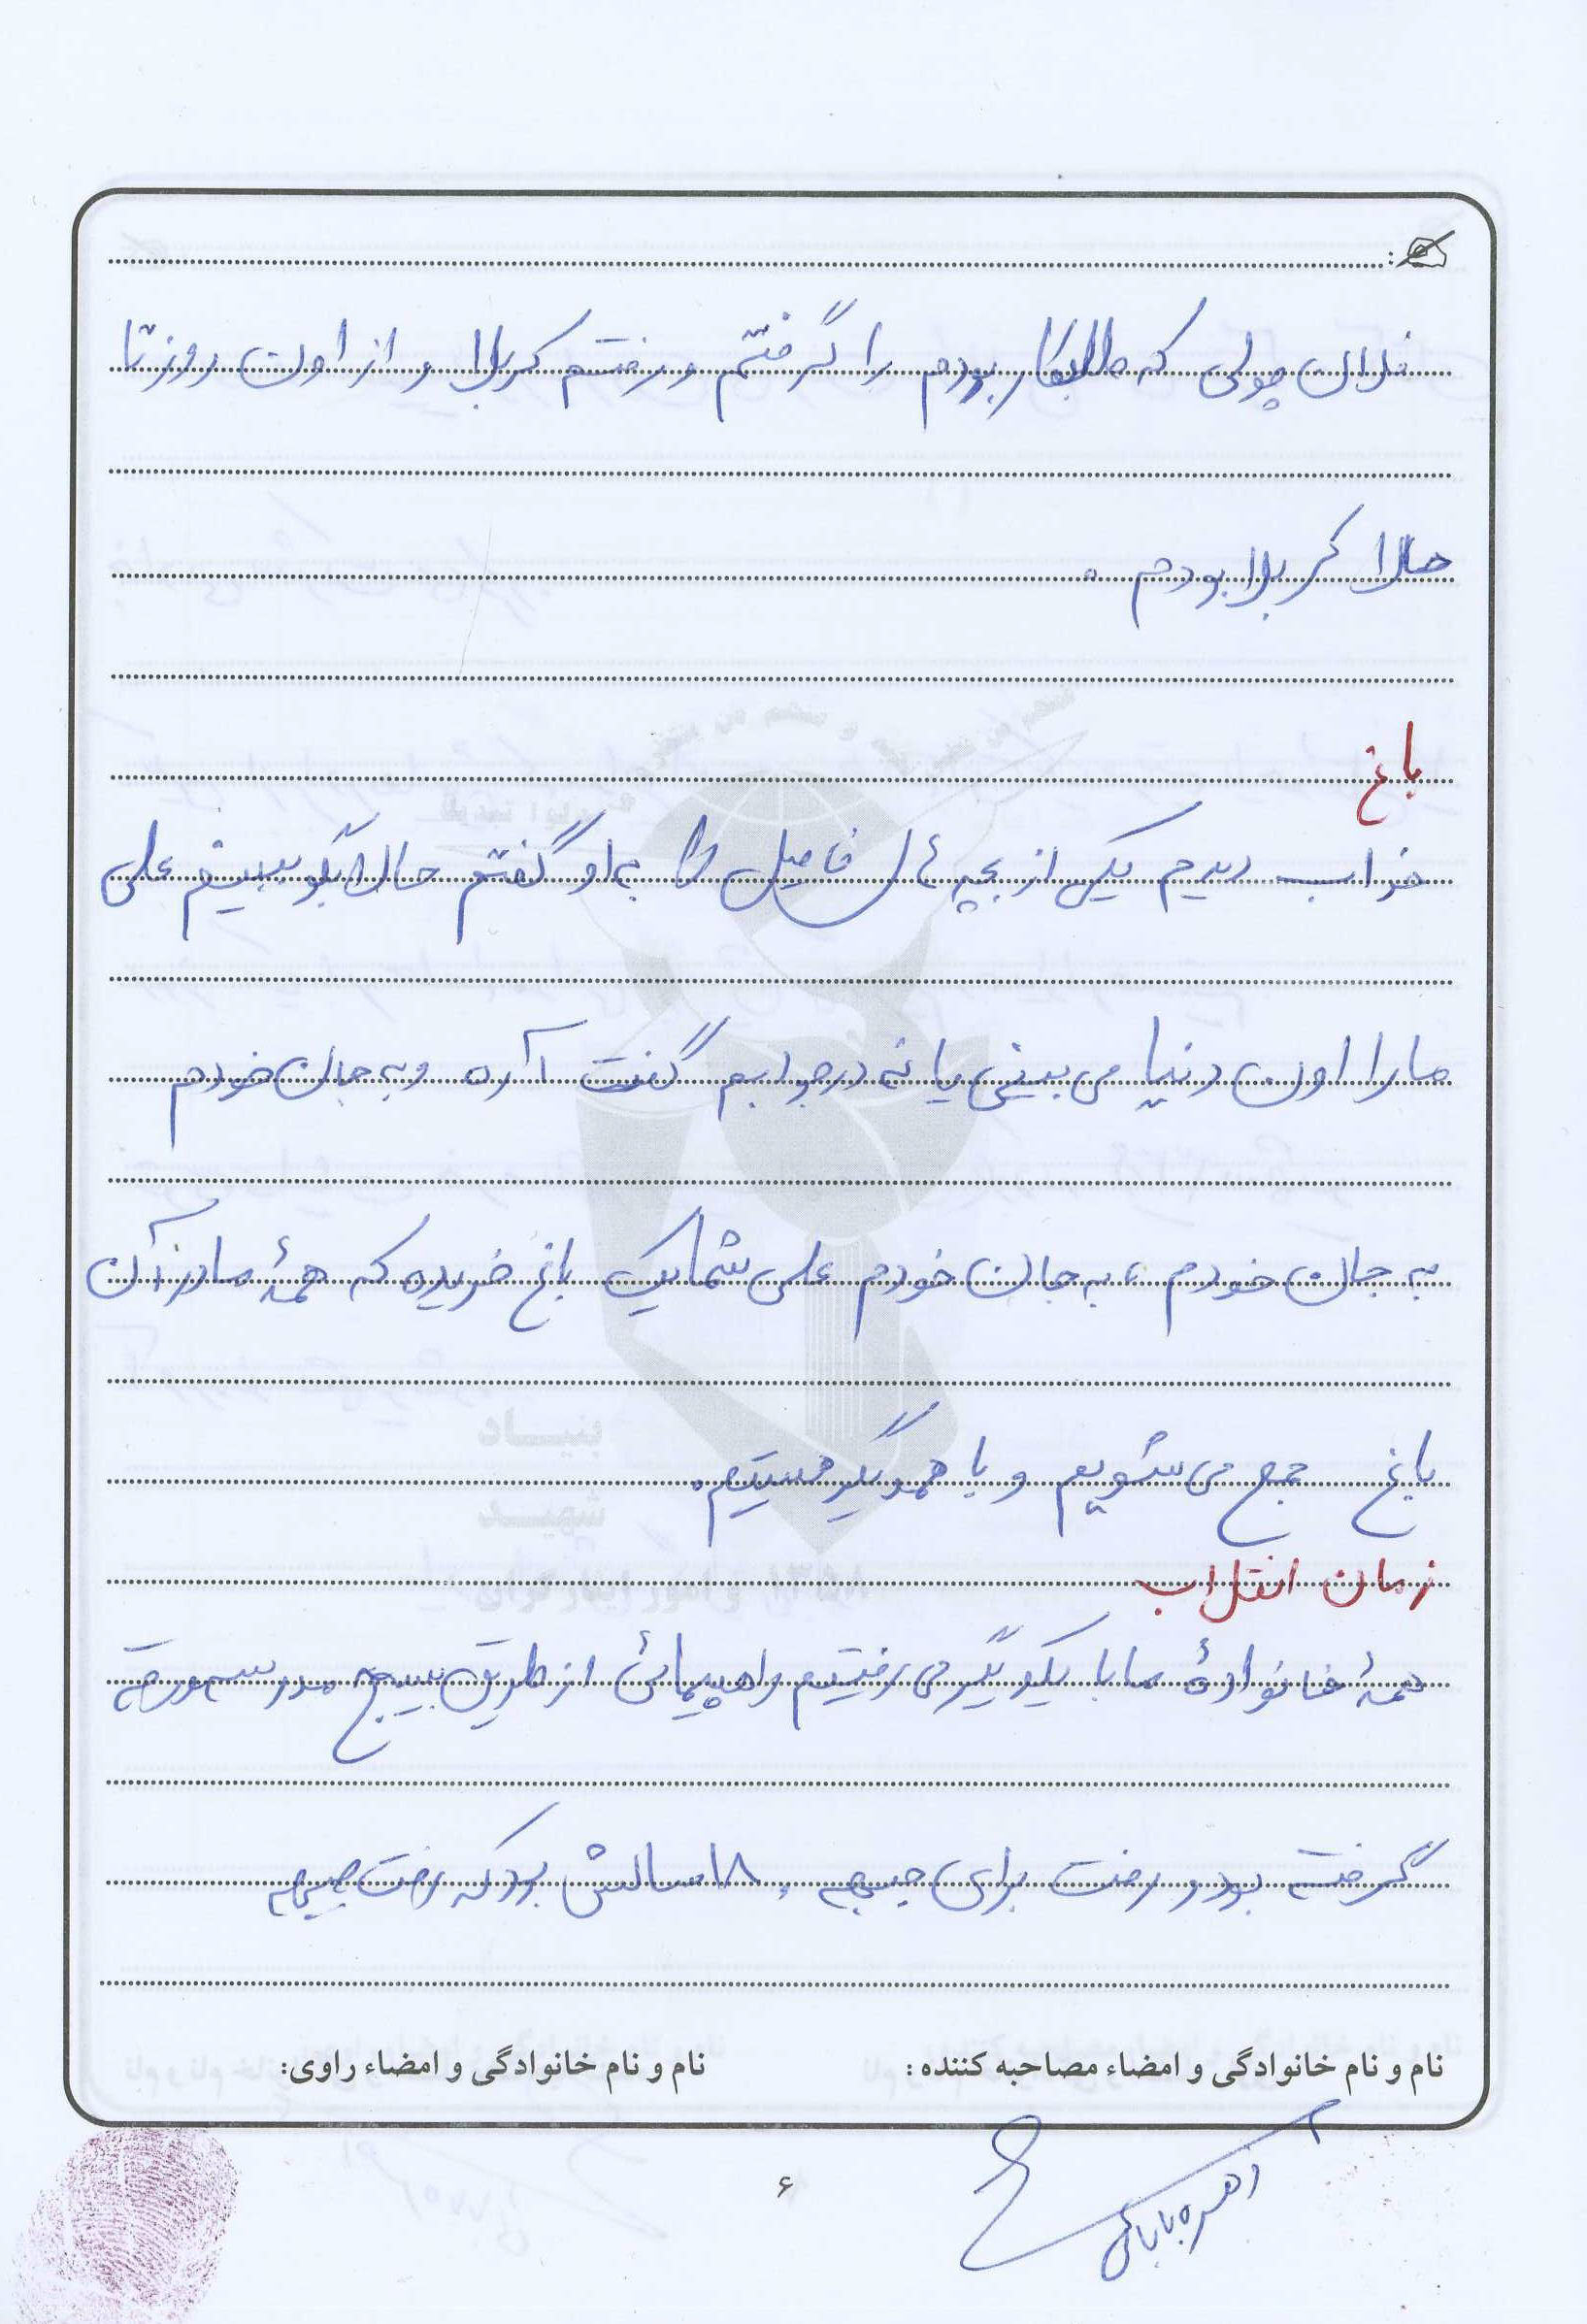 فلان پولی که طلبکار بودم را گرفتم و رفتم کربلا و از اون روز تا
حالا کربلا بودم .
باغ
خواب دیدم یکی از بچه های فامیل را به او گفتم حالا بگو ببینم علی
ما را اون دنیا می بینی یا نه در جوابم گفت آره و به جان خودم
به جان خودم ، به جان خودم علی شما یک باغ خریده که همهٔ ما در آن
باغ جمع می شویم و با همدیگر هستیم.
زمان انقلاب
همهٔ خانوادهٔ ما با یکدیگر می رفتیم راهپیمائی از طریق بسیج مدرسه ورقه
گرفته بود و رفت برای جبهه . ۱۸ سالش بود که رفت جبهه
نام و نام خانوادگی و امضاء مصاحبه کننده : نام و نام خانوادگی و امضاء راوی:
۶